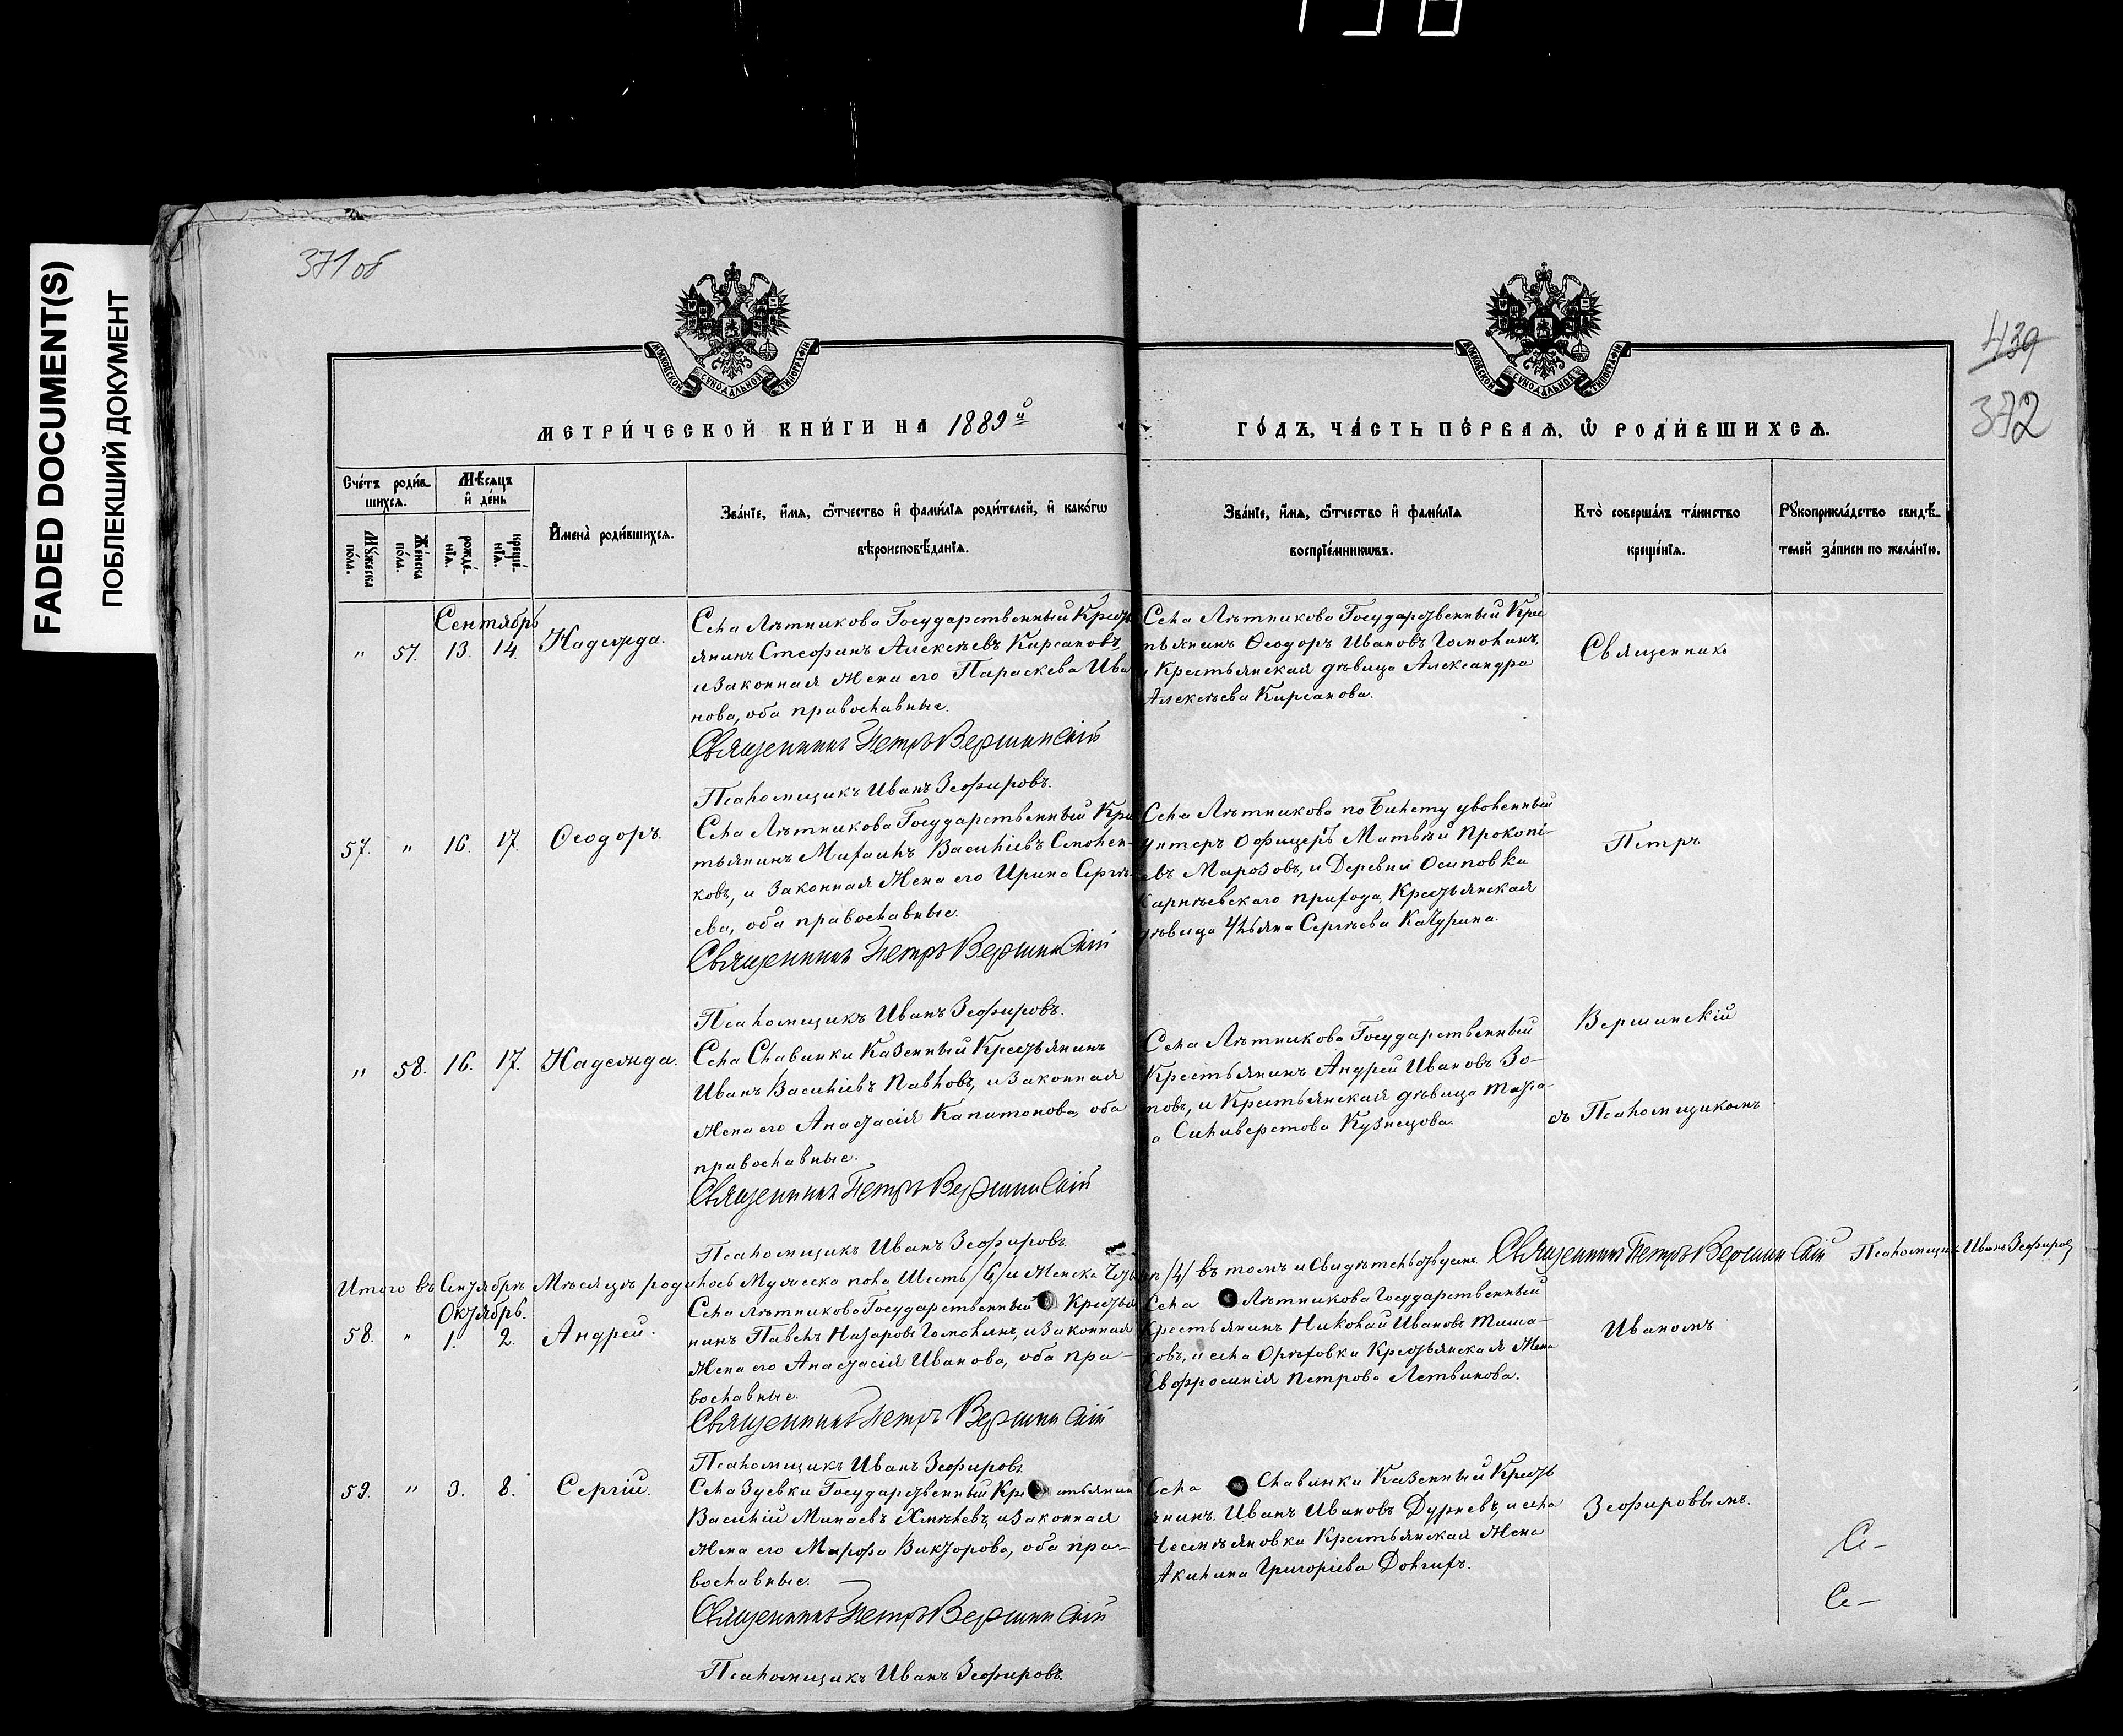 FADED DOCUMENT(S)
ПОБЛЕКШИЙ ДОКУМЕНТ
371 об
439
372
МОСКОВСКОЙ СУНОДАЛЬНОЙ ТИПОГРАФІИ
МОСКОВСКОЙ СУНОДАЛЬНОЙ ТИПОГРАФІИ
МЕТРИ́ЧЕСКОЙ КНИ́ГИ НА 1889й
ГО́ДЪ, ЧА́СТЬ ПЕ́РВАЯ, Ѡ РОДИ́ВШИХСЯ.
Сче́тъ роди́в-
шихся.
Мѣ́сяцъ
и де́нь
Му́жеска по́ла.
Же́нска по́ла.
рожде́-
нія.
креще́-
нія.
Имена̀ роди́вшихся.
Зва́ніе, и́мя, ѻ҆́тчество и фами́лія роди́телей, и како́гѡ
вѣроисповѣ́данія.
Зва́ніе, и́мя, ѻ҆́тчество и фами́лія
воспріе́мникѡвъ.
Кто̀ соверша́лъ та́инство
креще́нія.
Рꙋкоприкла́дство свидѣ́-
телей за́писи по жела́нію.
Сентябрь
" 57. 13. 14. Надежда.
Села Лѣтникова Государственный Кресть
янинъ Стефанъ Алексѣевъ Кирсановъ,
и законная жена его Параскева Ива
нова, оба православные.
Священникъ Петръ Вершинскій
Псаломщикъ Иванъ Зефировъ.
Села Лѣтникова Государственный Кре
тьянинъ Ѳеодоръ Ивановъ
и Крестьянская дѣвица Александра
Алексѣева Кирсанова.
Священникъ
57. " 16. 17. Ѳеодоръ.
Села Лѣтникова Государственный Кре
тьянинъ Михаилъ Васильевъ Смолен-
ковъ, и законная жена его Ирина Сергѣ-
ева, оба православные.
Священникъ Петръ Вершинскій
Псаломщикъ Иванъ Зефировъ.
Села Лѣтникова по билету уволенный
унтеръ офицеръ Матвѣй Прокопі-
евъ Марозовъ, и Деревни Осиповки
прихода, Крестьянская
дѣвица Ульяна Сергѣева Качурина.
Петръ
" 58. 16. 17. Надежда.
Села Славинки Казенный Крестьянинъ
Иванъ Васильевъ Павловъ, и законная
жена его Анастасія Капитонова, оба
православные.
Священникъ Петръ Вершинскій
Псаломщикъ Иванъ Зефировъ.
Села Лѣтникова Государственный
Крестьянинъ Андрей Ивановъ Зо-
товъ, и Крестьянская дѣвица
Сильверстова Кузнецова.
Вершинскій
съ Псаломщикомъ
Итого въ Сентябрѣ Мѣсяцѣ родилось Мужеска пола Шесть /6/ и Женска Четыре /4/ въ томъ и свидѣтельствуемъ. Священникъ Петръ Вершинскій Псаломщикъ Иванъ Зефировъ
Октябрь.
58. " 1. 2. Андрей.
Села Лѣтникова Государственный Крестья
нинъ Павелъ Назаровъ и законная
жена его Анастасія Иванова, оба пра-
вославные.
Священникъ Петръ Вершинскій
Псаломщикъ Иванъ Зефировъ
Села Лѣтникова Государственный
Крестьянинъ Николай Ивановъ Тиша-
ковъ, и села Орѣховки Крестьянская жена
Евфросинія Петрова Летвинова.
Иваномъ
59. " 3. 8. Сергій.
Села Зуевки Государственный Крестьянин
Василій Минаевъ Хмѣлевъ, и законная
жена его Марфа Викторова, оба пра-
вославные.
Священникъ Петръ Вершинскій
Псаломщикъ Иванъ Зефировъ.
Села Славинки Казенный Кресть
янинъ Иванъ Ивановъ Дурневъ, и села
Крестьянская жена
Акилина Григоріева Долгихъ.
Зефировымъ.